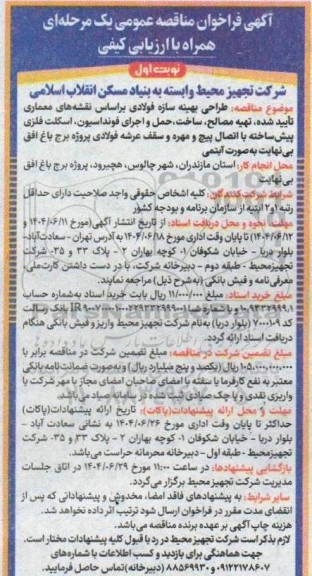 آگهی فراخوان مناقصه عمومی یک مرحله‌ای
همراه با ارزیابی کیفی
نوبت اول
شرکت تجهیز محیط وابسته به بنیاد مسکن انقلاب اسلامی
موضوع مناقصه: طراحی بهینه سازه فولادی براساس نقشه‌های معماری
تأیید شده، تهیه مصالح، ساخت، حمل و اجرای فونداسیون، اسکلت فلزی
پیش‌ساخته با اتصال پیچ و مهره و سقف عرشه فولادی پروژه برج باغ افق
بی‌نهایت به‌صورت آیتمی
محل انجام کار: استان مازندران، شهر چالوس، هچیرود، پروژه برج باغ افق
بی‌نهایت
شرایط شرکت‌کنندگان: کلیه اشخاص حقوقی واجد صلاحیت دارای حداقل
رتبه ۱و۲ ابنیه از سازمان برنامه و بودجه کشور
مهلت، نحوه و محل دریافت اسناد: از تاریخ انتشار آگهی (مورخ ۱۴۰۴/۰۶/۱۱ و
۱۴۰۴/۰۶/۱۲) تا پایان وقت اداری مورخ ۱۴۰۴/۰۶/۱۸ به آدرس تهران - سعادت‌آباد-
بلوار دریا - خیابان شکوفان ۱- کوچه بهاران ۲ - پلاک ۳۳ و ۳۵- شرکت
تجهیزمحیط - طبقه دوم - دبیرخانه شرکت، با در دست داشتن کارت‌ملی،
معرفی‌نامه و فیش بانکی (به‌شرح ذیل) مراجعه نمایند.
مبلغ خرید اسناد: مبلغ ۱۱/۰۰۰/۰۰۰ ریال بابت خرید اسناد به‌شماره حساب
و با شماره شبا بانک رسالت
کد ۷۰۰۰۱۰۹ (بلوار دریا) به‌نام شرکت تجهیز محیط واریز و فیش بانکی هنگام
دریافت اسناد ارائه گردد.
مبلغ تضمین شرکت در مناقصه: مبلغ تضمین شرکت در مناقصه برابر با
۱۰۵،۰۰۰،۰۰۰،۰۰۰ ریال (یکصد و پنج میلیارد ریال) و به‌صورت ضمانت‌نامه بانکی
معتبر به نفع کارفرما یا سفته با امضای صاحبان امضای مجاز با مهر شرکت یا
واریزی نقدی و یا چک صیادی ثبت‌شده در سامانه صیاد می‌باشد.
مهلت و محل ارائه پیشنهادات(پاکات): تاریخ ارائه پیشنهادات(پاکات)
حداکثر تا پایان وقت اداری مورخ ۱۴۰۴/۰۶/۲۶ به نشانی سعادت آباد -
بلوار دریا - خیابان شکوفان ۱- کوچه بهاران ۲ - پلاک ۳۳ و ۳۵- شرکت
تجهیزمحیط - طبقه اول - دبیرخانه محرمانه حراست می‌باشد.
بازگشایی پیشنهادها: در ساعت ۱۱:۰۰ مورخ ۱۴۰۴/۰۶/۲۹ در اتاق جلسات
مدیریت شرکت تجهیز محیط برگزار می‌گردد.
سایر شرایط: به پیشنهادهای فاقد امضا، مخدوش و پیشنهاداتی که پس از
انقضای مدت مقرر در فراخوان ارسال شود ترتیب اثر داده نخواهد شد.
هزینه چاپ آگهی بر عهده برنده مناقصه می‌باشد.
لازم بذکر است شرکت تجهیز محیط در رد یا قبول کلیه پیشنهادات مختار است.
جهت هماهنگی برای بازدید و کسب اطلاعات با شماره‌های
۰۹۱۲۲۱۷۸۶۰۷ و ۸۸۵۶۹۹۳۰ (دبیرخانه)تماس حاصل فرمایید.